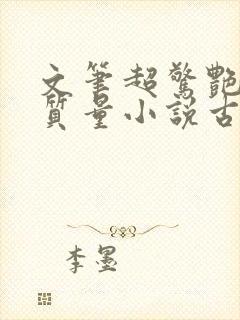 文筆超驚艷
質量小說古
李墨